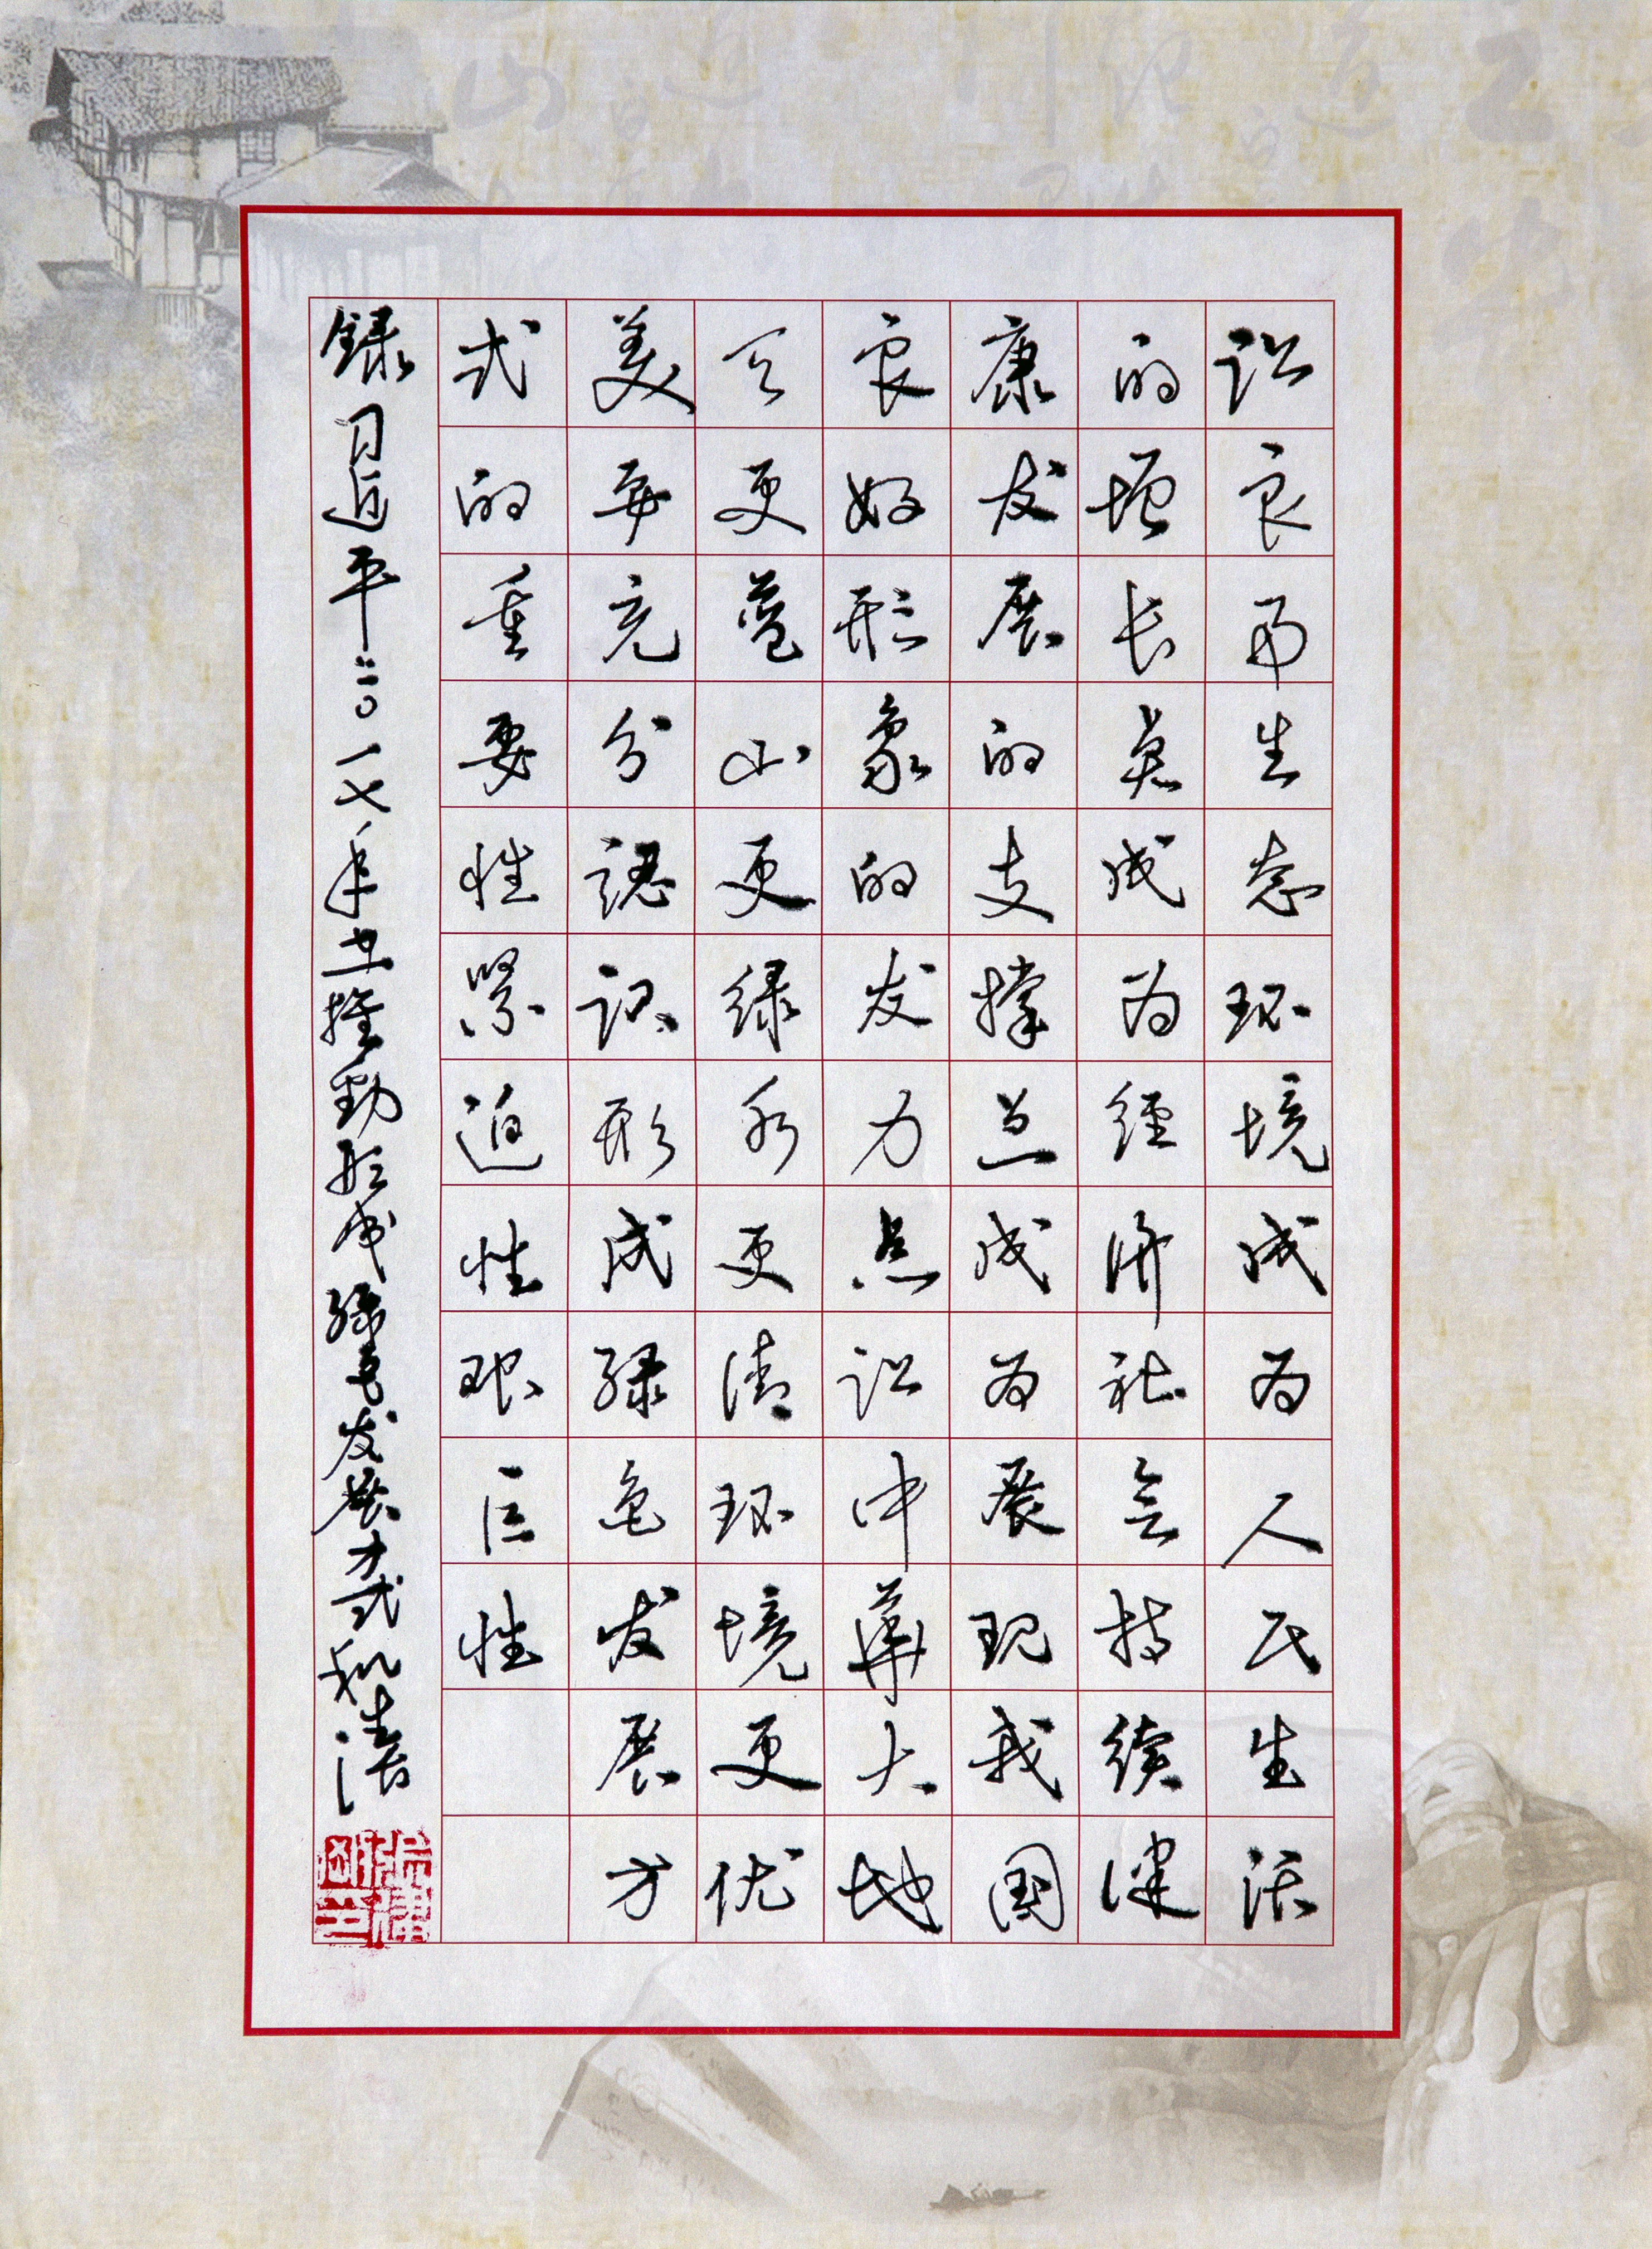 让良好生态环境成为人民生活
的增长点成为經济社会持續健
康发展的支撑点成为展现我国
良好形象的发力点让中華大地
天更蓝山更绿水更清环境更优
美要充分認识形成绿色发展方
式的重要性紧迫性艰巨性
録习近平二〇一七年在推動形成绿色发展方式和生活